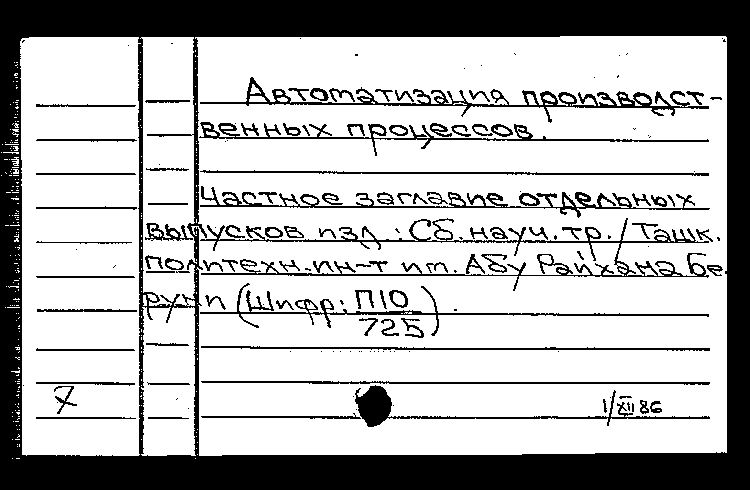 Автоматизация производст-
венных процессов.
Частное заглавие отдельных
выпусков изд.: Сб. науч. тр. / Ташк.
политехн. ин-т им. Абу Райхана Бе-
руни (Шифр: П10
725).
X
1/XII 86